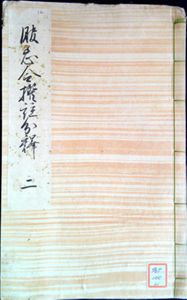 服忌令撰註分釋 二